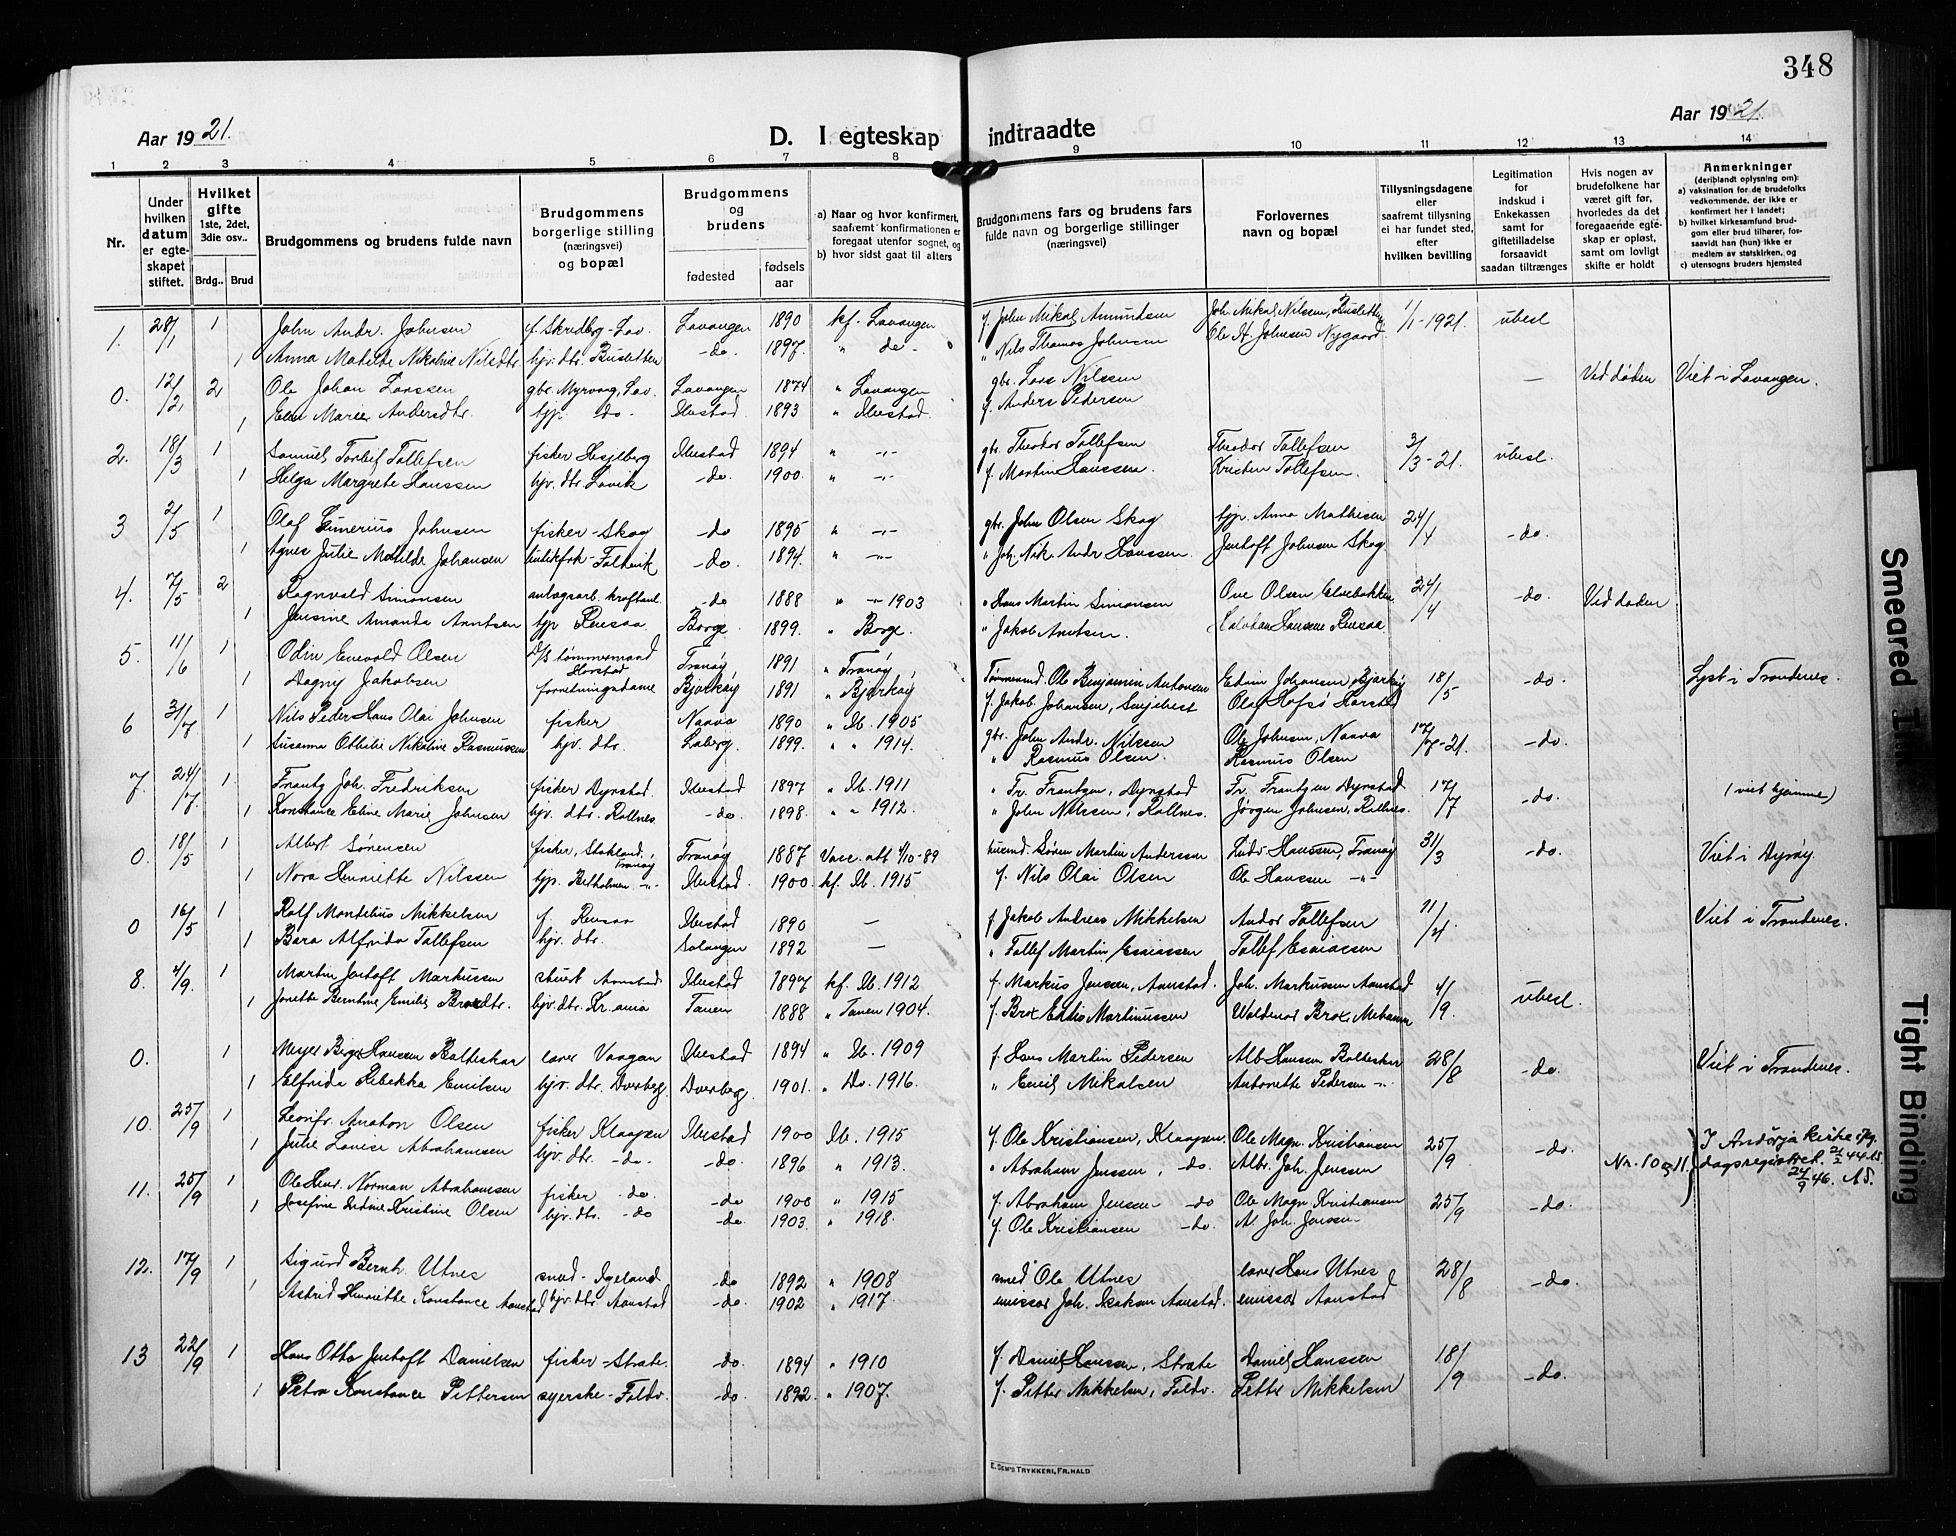 348
Aar 1921.
D. I egteskap indtraadte
Aar 1921.
1 2 3 4 5 6 7 8 9 10 11 12 13 14
Nr.
Under hvilken datum er egteskapet stiftet.
Hvilket gifte 1ste, 2det, 3die osv..
Brdg.. Brud
Brudgommens og brudens fulde navn
Brudgommens borgerlige stilling (næringsvei) og bopæl
Brudgommens og brudens
fødested
fødselsaar
a) Naar og hvor konfirmert, saafremt konfirmationen er foregaat utenfor sognet, og
b) hvor sidst gaat til alters
Brudgommens fars og brudens fars fulde navn og borgerlige stillinger (næringsvei)
Forlovernes navn og bopæl
Tillysningsdagene eller saafremt tillysning ei har fundet sted, efter hvilken bevilling
Legitimation for indskud i Enkekassen samt for giftetilladelse forsaavidt saadan tiltrænges
Hvis nogen av brudefolkene har været gift før, hvorledes da det foregaaende egteskap er opløst, samt om lovligt skifte er holdt
Anmerkninger (deriblandt oplysning om):
a) vaksination for de brudefolks vedkommende, der ikke er konfirmert her i landet;
b) hvilket kirkesamfund brudgom eller brud tilhører, forsaavidt han (hun) ikke er medlem av statskirken, og
c) utensogns bruders hjemsted
1. 28/1 1 John Andr. Johnsen f. Skredbg-Lav. Lavangen 1890 kf. Lavangen f. John Mikal Amundsen Joh. Mikal Nilssen, Busletten 1/1-1921. ubesl
1 Anna Matilde Nikoline Nilsdtr. hjv. dtr. Busletten -do- 1897. " do - " Nils Thomas Johnsen Ole H. Johnsen Nygaard
0. 12/2 2 Ole Johan Larssen gbr. Myrvang, Lav. Lavangen 1874 " Lavangen gbr. Lars Nilssen — Ved døden Viet i Lavangen.
1 Elen Marie Andersdtr. tjp. do. Ibestad 1893 " Ibestad. f. Anders Pedersen
2. 18/3 1 Samuel Torleif Tollefsen fisker Hesjlberg Ibestad 1894 " -"- gbr. Theodor Tollefsen Theodor Tollefsen 3/3-21. ubesl.
1 Helga Margrete Hanssen hjv. dtr. Lavik -do. 1900. " -"- f. Martin Hanssen. Kristen Tollefsen.
3 2/5 1 Olaf Johnsen fisker-Skog -do 1895 " -"- gbr. John Olsen Skog tjp. Anna Mathisen 24/4 -do.
1 Agnes Julie Matilde Johansen -do. 1894. " -"- " Joh. Nik. Andr Hanssen. Jentoft Johnsen Skog
4. 7/5 2 Ragnvald Simonsen anlægsarb. kraftanl. -do 1888 " -"- 1903 " Hans Martin Simonsen Ove Olsen Elvebakken 24/4 -do. Ved døden
1 Jensine Amanda Arntsen tjp Rensaa. Borge 1899. " Borge. " Jakob Arntsen. Halvdan Hansen Rensaa
5. 11/6 1 Odin Enevold Olsen D/S tømmermand Harstad Tranøy 1891 " Tranøy Tømmermd. Ole Benjamin Antonsen Edvin Johansen, Bjarkøy 18/5 -do. Lyst i Trondenes.
1 Dagny Jakobsen forretningsdame Bjarkøy 1891 " Bjarkøy f. Jakob Johansen, Olaf Hofsø Harstad
6 31/7 1 Nils Peder Hans Olai Johnsen fisker Naavo 1890 " Ib. 1905 gbr. John Andr. Nilssen Ole Johnsen, Naavo 17/7-21. -do.
1 Susanna Othilie Nikoline Rasmussen hjv. dtr. Laberg. 1899. " " 1914. " Rasmus Olsen. Rasmus Olsen
7. 24/7 1. Frantz Joh. Fredriksen fisker Dyrstad. Ibestad 1897 " Ib. 1911 " Fr. Frantzen, Dyrstad Fr. Frantzen Dyrstad 17/7 -do. (viet hjemme)
1 Konstance Eline Marie Johnsen hjv. dtr. Rollnes. -do. 1898. " - 1912. " John Nilssen, Rollnes. Jørgen Johnsen, Rollnes.
0. 18/5 1 Albert Sørensen fisker, Stokland, Tranøy Tranøy 1887 Vacc. att 4/10-89 husmd. Søren Martin Anderssen Ludv Hanssen, Tranøy 31/3 -do. Viet i Dyrøy.
1 Nora Henriette Nilssen tjp. Betholmen -"- Ibestad. 1900. kf. Ib. 1915 f. Nils Olai Olsen Ole Hanssen -"-
0 16/5 1 Rolf Mondelius Mikkelsen f. Rensaa Ibestad 1890 — f Jakob Andreas Mikkelsen Andor Tollefsen 11/4 Viet i Trondenes.
1 Bara Alfrida Tollefsen hjv. dtr. Salangen 1892 — " Tollef Martin Esaiassen Tollef Esaiassen
8. 4/9. 1 Martin Jentoft Markussen Aanstad. Ibestad 1897 kf. Ib. 1912 f. Markus Jenssen, Aanstad. Joh. Markussen Aanstad 4/9. ubesl.
1 Jonette Berntine Emilie Broxdtr. hjv. dtr. Kr. ania Tanen 1888 " Tanen 1904. f. Brox Edis Martinussen Valdemar Brox, Mehamn
0. 1 Meyer Birger Hansen Balteskar lærer Vaagan Ibestad 1894 " Ib. 1909 f. Hans Martin Pedersen Alb Hansen Balteskar 28/8 -do. Viet i Trondenes.
1 Elfrida Rebekka Emilsen hjv. dtr. Dverbeg. Dverbeg. 1901. " Do. 1916. " Emil Mikalsen Antonette Pedersen -"-
10. 25/9 1 Leonfr. Anaton Olsen fisker Klaapen Ibestad 1900 Ib. 1915 f. Ole Kristiansen, Klaapen. Ole Magn. Kristiansen 25/9 -do. Nr. 10 og 11. } I Andørja kirke
1 Julie Lovise Abrahamsen hjv. dtr. -do. -do. 1896. " 1913. " Abraham Jenssen, do. Albr. Joh. Jenssen dagsregistret. 21/2 44 AS. 24/9 46. AS.
11. 25/9 1 Ole Henr. Norman Abrahamsen fisker do. -do 1900 " 1915 f. Abraham Jenssen -do Ole Magn. Kristiansen 25/9 -do.
1 Josefine Kristine Olsen hjv. dtr. -do -do 1903. " 1918. f. Ole Kristiansen -do. Al Joh. Jenssen
12. 17/9 1 Sigurd Bernh. Utnes smed - Igeland -do 1892 " 1908 smed Ole Utnes lærer Hans Utnes 28/8 -do.
1 Astrid Henriette Konstance Aanstad hjv. dtr Aanstad -do. 1902 " 1917. emissær Joh. Aanstad. emissær Aanstad
13 22/9 1 Hans Otto Jentoft Danielsen fisker-Strate. -do. 1894 " 1910 f. Daniel Hanssen, Strate Daniel Hanssen 18/9 -do.
1 Petra Konstance Pettersen syerske-Foldv. -do. 1892 " 1907. f. Petter Mikkelsen, Foldv. Petter Mikkelsen
E. SEM'S TRYKKERI, FR.HALD
Smeared Ink
Tight Binding